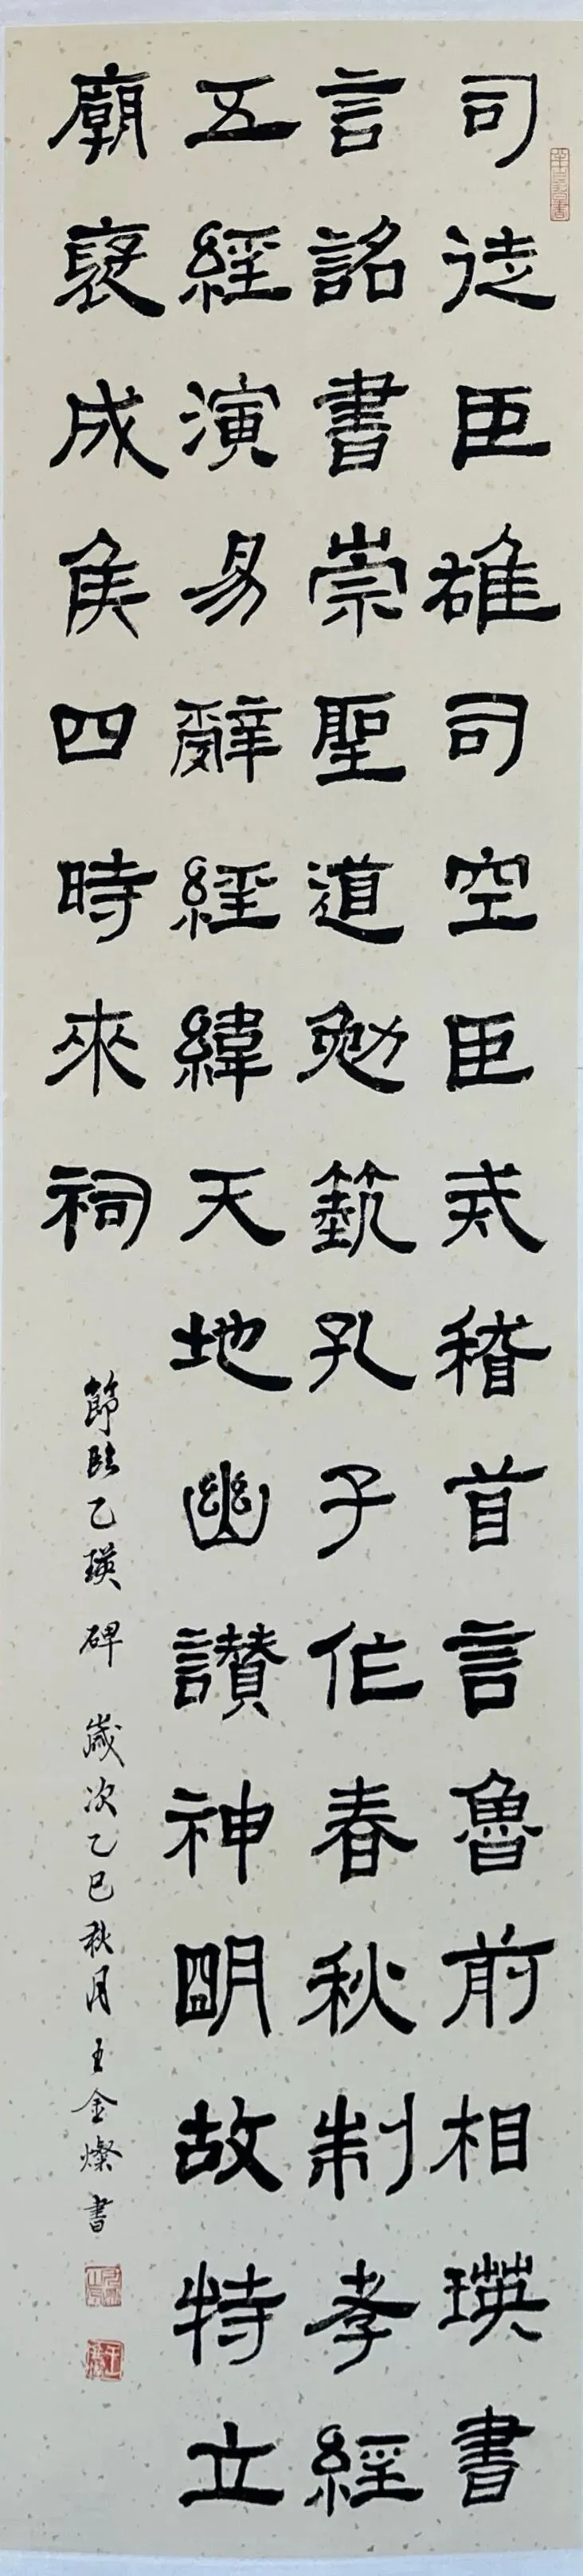 司徒臣雄司空臣戒稽首言魯前相瑛書
言詔書崇聖道勉藝孔子作春秋制孝經
五經演易辭經緯天地幽讚神明故特立
廟褒成侯四時來祠
節臨乙瑛碑 歲次乙巳秋月王金燦書